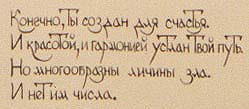 Конечно, Ты создан для счастья.
И красотой, и гармонией устлан Твой путь.
Но многообразны личины зла.
И нет им числа.